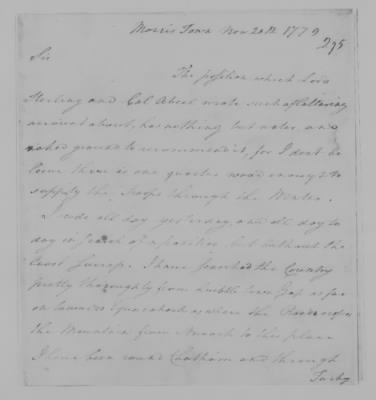 Morris Town Nov 20th 1779
295
Sir
The position which Lord
Sterling and Col Abeel wrote such a flattering
account about, has nothing but water, and
naked grounds to recommend it, for I dont be
lieve there is one quarter wood enough to
supply the Troops through the Winter.
I rode all day yesterday, and all day to
day in search of a position, but without the
least Success. I have searched the Country
pretty thoroughly from Scotch Gap as far
on towards Equacanock as where the Road crosses
the Mountain from Newark to this place
I have been round Chatham and through
Turky